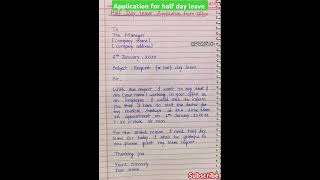 Application for half day leave
Half Day leave Application from Office
To
The Manager
[Company Name]
[Company address]
6th January, 2020
Subject: Request for half day leave
Sir,
With due respect, I want to say that I
am [your name] working in your office as
an employee. I would like to inform
you that I have to visit the doctor for
my routine checkup. At the same time
an appointment on 6th January
For the stated reason, I need half day
leave for today. I shall be grateful to
you please grant my leave request.
Thanking you
Yours Sincerely
Your name
Subscribe